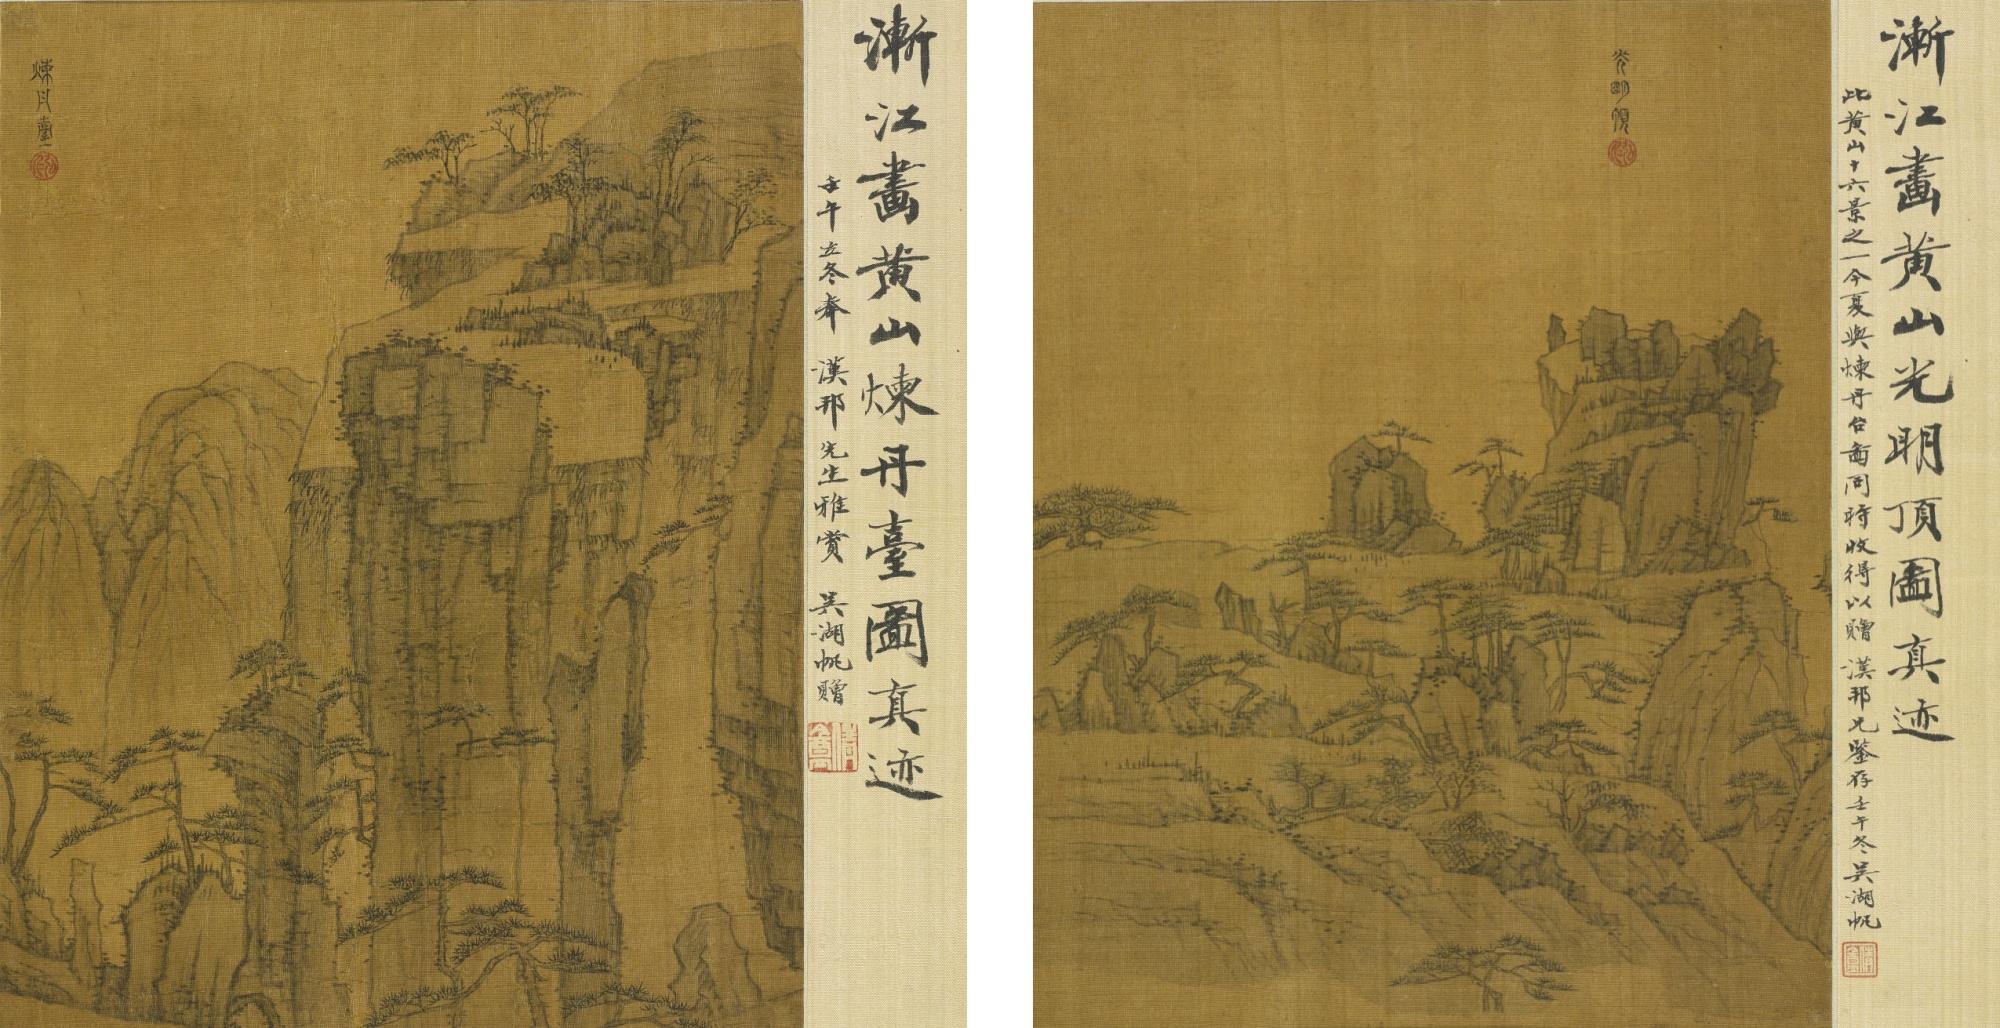 煉丹臺
漸江畫黃山煉丹臺圖真迹
壬午立冬奉 漢邦先生雅賞 吳湖帆贈
光明頂
漸江畫黃山光明頂圖真迹
此黃山十六景之一今夏與煉丹台啚同時收得以贈 漢邦兄鑒存壬午冬吳湖帆